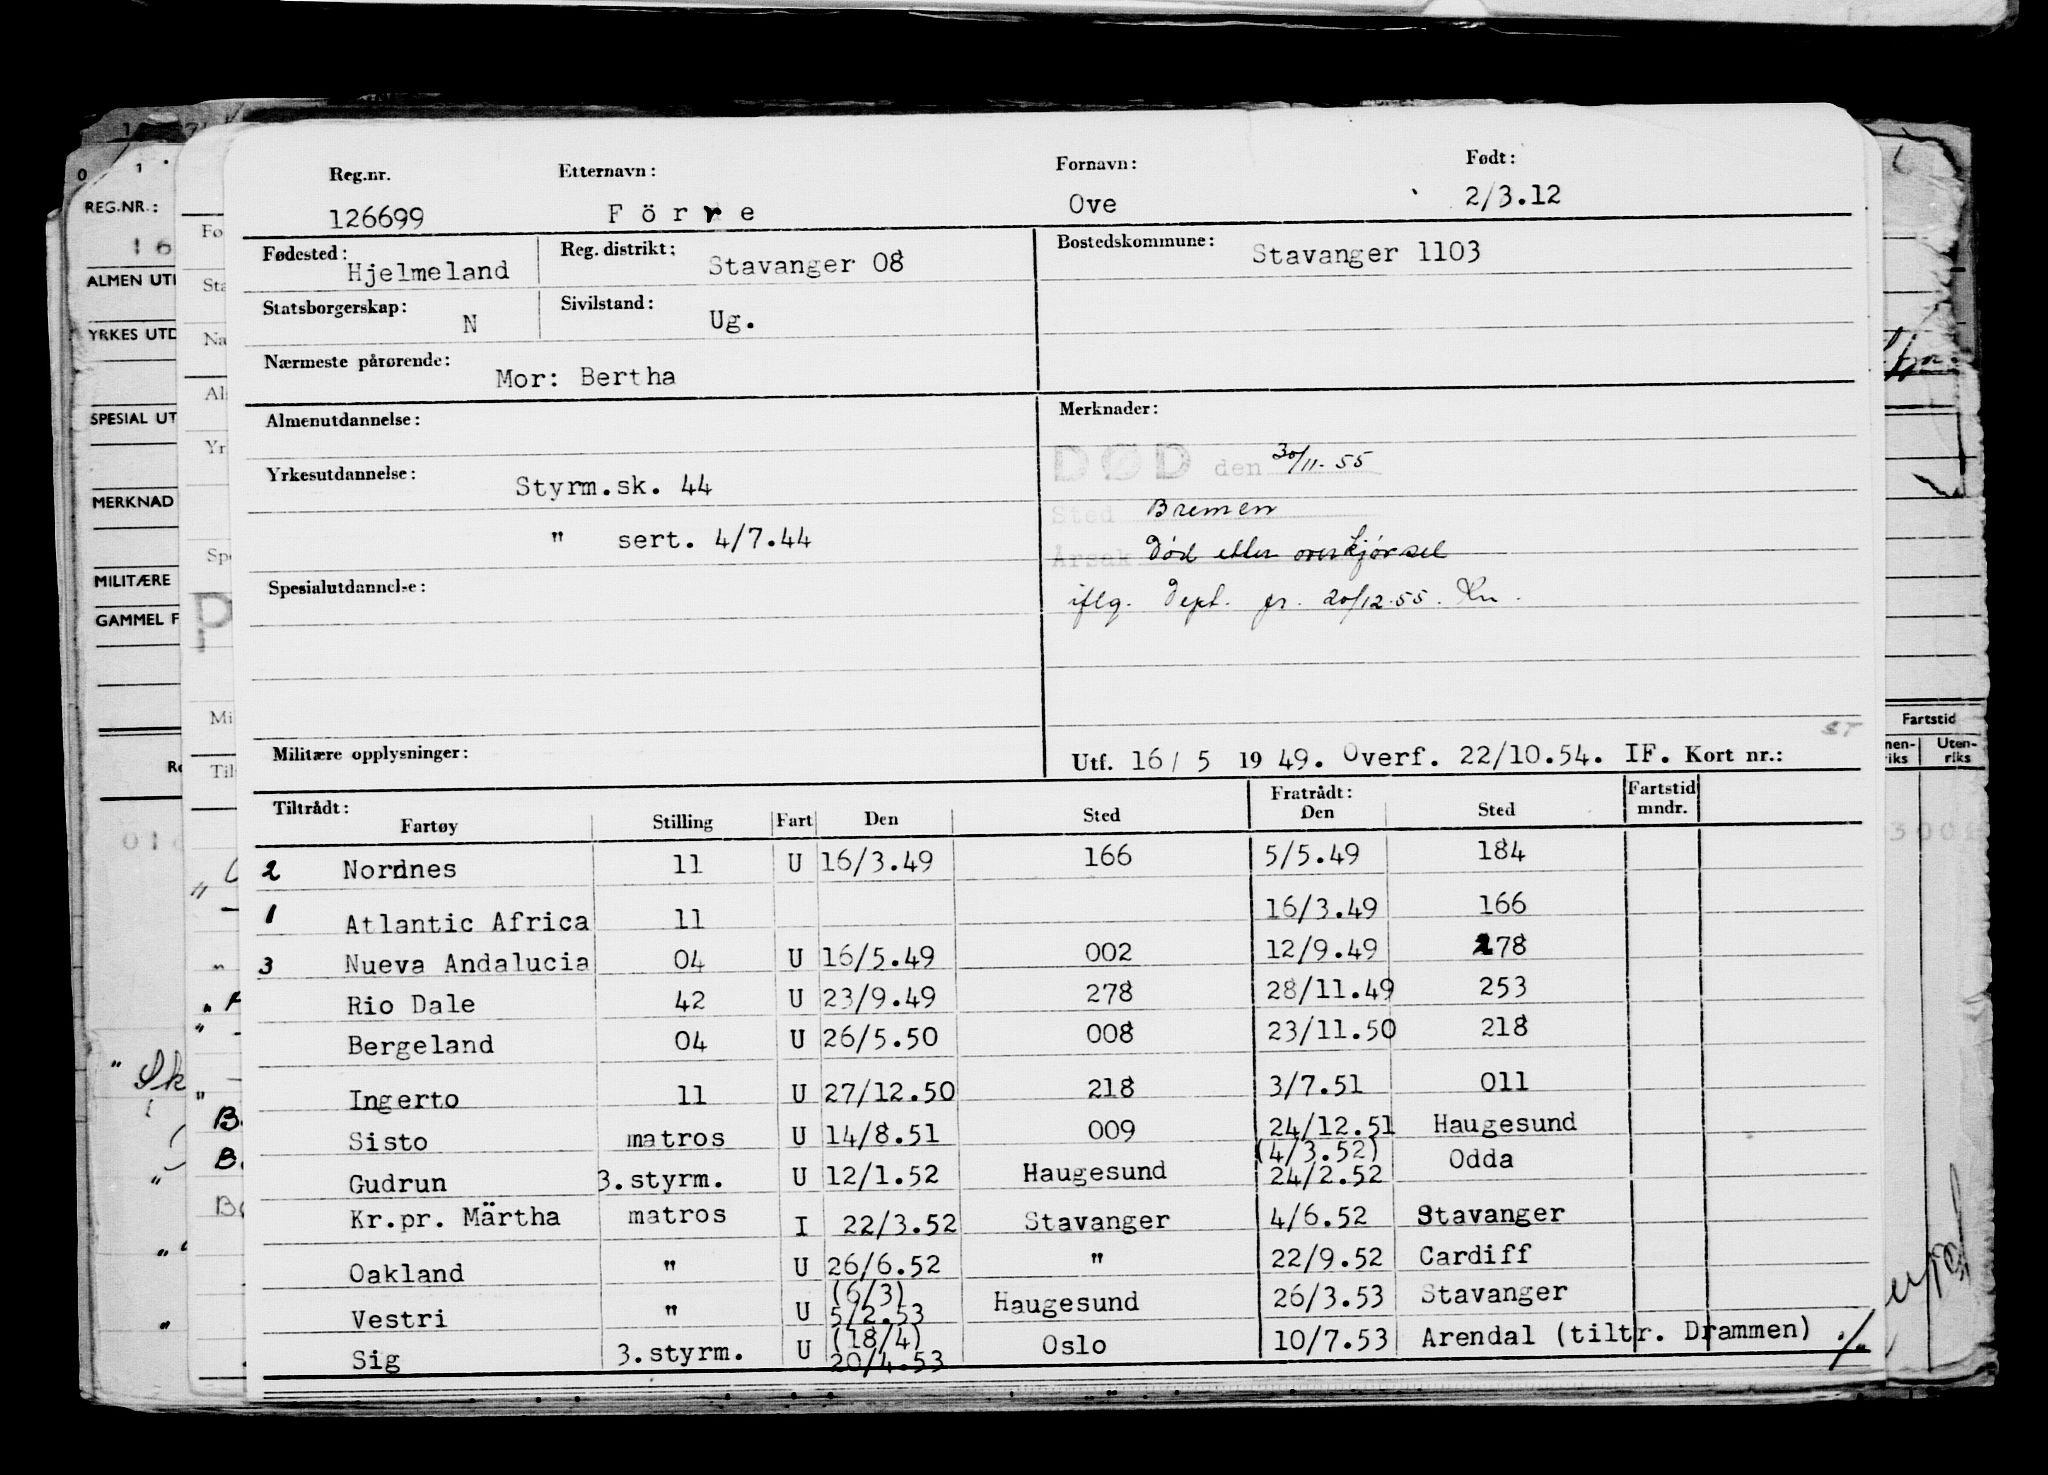 Reg.nr. Etternavn: Fornavn: Født:
126699 Förre Ove 2/3.12
Fødested: Hjelmeland Reg. distrikt: Stavanger 08 Bostedskommune: Stavanger 1103
Statsborgerskap: N Sivilstand: Ug.
Nærmeste pårørende: Mor: Bertha
Almenutdannelse: Merknader:
DØD den 30/11-55
Yrkesutdannelse: Styrm.sk. 44
Sted Bremen
" sert. 4/7.44
Årsak Død etter overkjørsel
Spesialutdannelse:
iflg. Dept. fr. 20/12-55.
Militære opplysninger: Utf. 16/ 5 19 49. Overf. 22/10.54. IF. Kort nr.:
Tiltrådt: Fratrådt: Fartstid
Fartøy Stilling Fart Den Sted Den Sted mndr.
2 Nordnes 11 U 16/3.49 166 5/5.49 184
1 Atlantic Africa 11 16/3.49 166
3 Nueva Andalucia 04 U 16/5.49 002 12/9.49 278
Rio Dale 42 U 23/9.49 278 28/11.49 253
Bergeland 04 U 26/5.50 008 23/11.50 218
Ingerto 11 U 27/12.50 218 3/7.51 011
Sisto matros U 14/8.51 009 24/12.51 Haugesund
(4/3.52)
Gudrun 3.styrm. U 12/1.52 Haugesund 24/2.52 Odda
Kr.pr. Märtha matros I 22/3.52 Stavanger 4/6.52 Stavanger
Oakland " U 26/6.52 " 22/9.52 Cardiff
(6/3)
Vestri " U 5/2.53 Haugesund 26/3.53 Stavanger
(18/4)
Sig 3.styrm. U 20/4.53 Oslo 10/7.53 Arendal (tiltr. Drammen) ./.
REG.NR.:
16
ALMEN UT
YRKES UTD
SPESIAL UT
MERKNAD
MILITÆRE
GAMMEL F
Fartstid
Uten-
riks